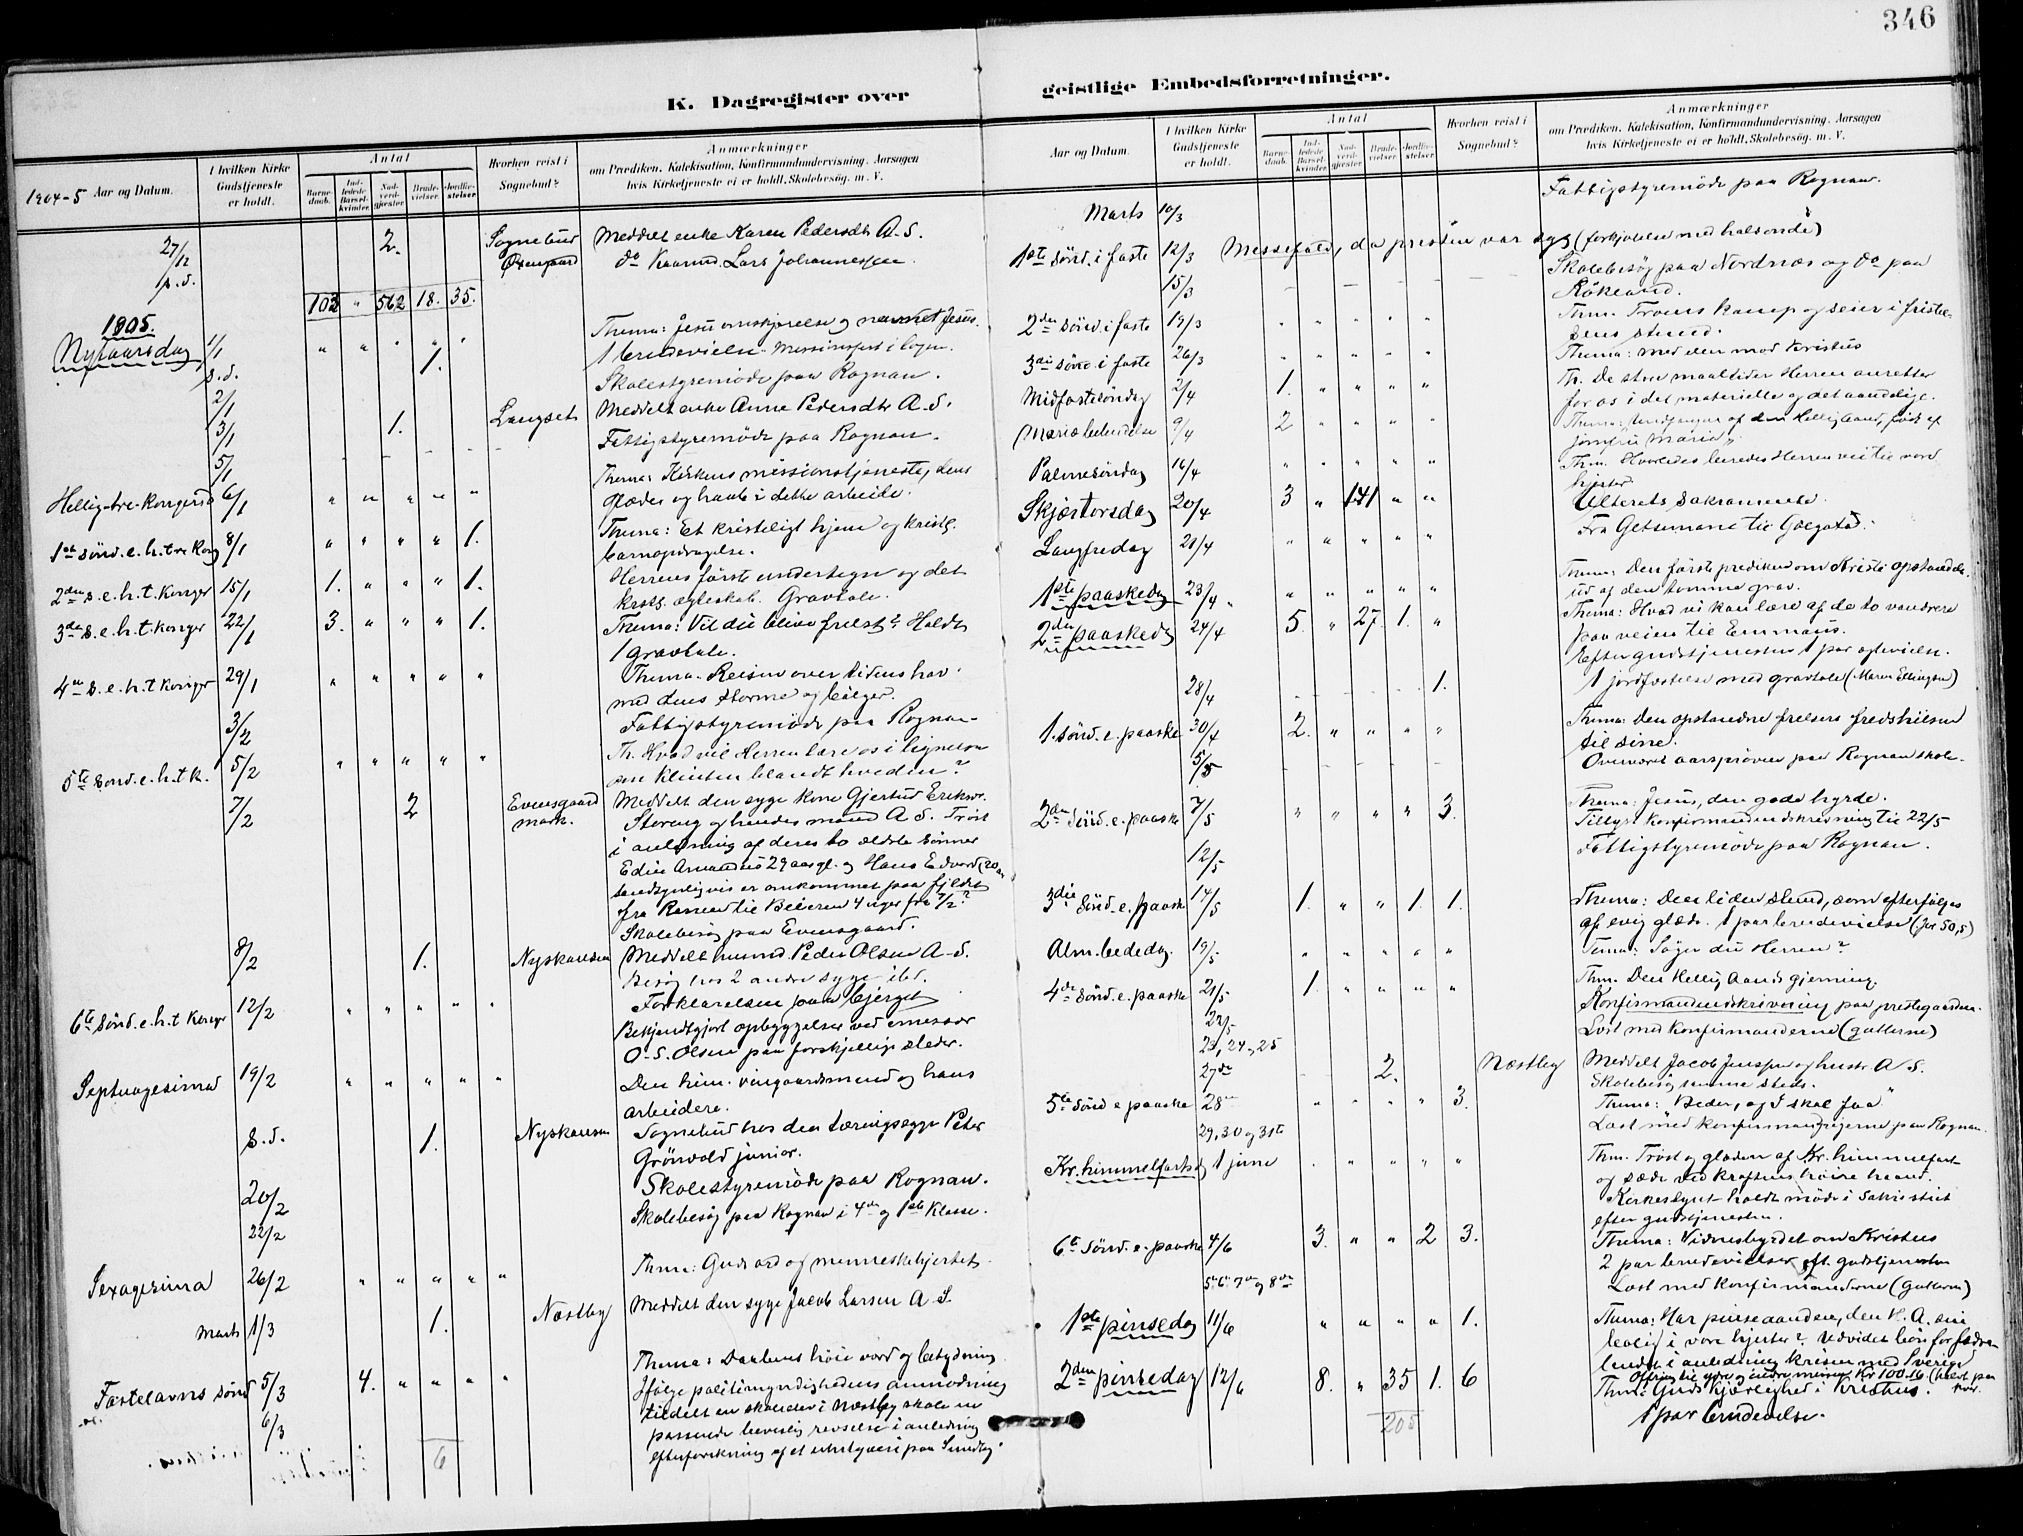 346
K. Dagregister over
geistlige Embedsforretninger.
1904-5 Aar og Datum.
I hvilken Kirke Gudstjeneste er holdt.
Antal
Barne-daab.
Ind-ledede Barsel-kvinder.
Nad-verd-gjæster
Brude-vielser.
Jordfæ-stelser.
Hvorhen reist i Sognebud?
Anmærkninger
om Prædiken, Katekisation, Konfirmandundervisning, Aarsagen
hvis Kirketjeneste ei er holdt, Skolebesøg. m. V.
27/12 2. Sognebud Meddelt enke Karen Pedersdtr A. S.
s. d. Øxengaard do Kaarmd. Lars Johannessen.
102 " 562 18. 35.
1905.
Nytaarsdag 1/1 " " " " " Thema: Jesu omskjærelse og navnet Jesus.
s.d. 1. 1 brudevielse. Missionsfest i logen.
2/1 Skolestyremöde paa Rognan.
3/1 1. Langset Meddelt enke Anna Pedersdtr A. S.
5/1 Fattigstyremöde paa Rognan.
Hellig-tre-Kongersd 6/1 " " " " " Thema: Kirkens missionstjeneste, dens
glæder og haab i dette arbeide.
1ste sönd.e.h.tre Kong 8/1 " " " " 1. Thema: Et kristeligt hjem og kristl.
barneopdragelse.
2den s.e.h.t. Konger 15/1 1. " " " 1. Herrens förste undertegn og det
kristl. ægteskab. Gravtale.
3die s.e.h.t. Konger 22/1 3. " " " 1. Thema: Vil du blive frelst? Holdt
1 gravtale.
4de s.e.h.t Konger 29/1 " " " " " Thema. Reisen over tidens hav
med dens storme og bölger.
3/2 Fattigstyremöde paa Rognan
5te sond.e.h.t.k. 5/2 " " " " " Th. Hvad vil Herren lære os i lignelsen
om klinten blandt hveden?
7/2 2 Evensgaard mark. Meddelt den syge kone Gjertrud Eriksdr.
Storeng og hendes mand A. S. Tröst
i anledning af deres to ældste sönner
Edin Amandus 29 aar gl. og Hans Edvard (20 aa
sandsynligvis er omkommet paa fjeldet
fra Ranen til Beieren 4 uger fra 7/2?
Skolebesög paa Evensgaard.
8/2 1. Nyskansen Meddelt husmd Peder Olsen A-S.
Besög hos 2 andre syge ibd.
6te sönd.e.h.t Konger 12/2 " " " " " Forklarelsen paa bjerget
Bekjendtgjort opbyggelser ved emissær
O-S. Olsen paa forskjellige steder.
Septuagesima 19/2 " " " " " Den him. vingaardsmand og hans
arbeidere.
s.d. 1. Nyskansen Sognebud hos den tæringssyge Peter
Grönvold junior.
20/2 Skolestyremöde paa Rognan.
22/2 Skolebesög paa Rognan i 4de og 1ste Klasse.
Sexagesima 26/2 " " " " " Thm: Guds ord og menneskehjertet.
Marts 1/3 1. Næstby Meddelt den syge Jacob Larsen A S.
Fastelavns sönd 5/3 4. " " " " Thema: Daabens höie værd og betydning
6/3 Ifölge politimyndighedens anmodning
tildelt en skoleelev i Næstby skole en
passende bevislig revselse i anledning
6
Aar og Datum.
I hvilken Kirke Gudstjeneste er holdt.
Antal
Barne-daab.
Ind-ledede Barsel-kvinder.
Nad-verd-gjæster
Brude-vielser.
Jordfæ-stelser.
Hvorhen reist i Sognebud?
Anmærkninger
om Prædiken, Katekisation, Konfirmandundervisning, Aarsagen
hvis Kirketjeneste ei er holdt, Skolebesøg. m. V.
Marts 10/3 Fattigstyremöde paa Rognan.
1ste sönd. i faste 12/3 Messefald, da presten var syg (forkjölelse med halsonde)
15/3 Skolebesög paa Nordnæs og do paa
Rökland.
2den sönd. i faste 19/3 " " " " " Thm. Troens kamp og seier i fristel-
sens stund.
3die sönd. i faste 26/3 " " " " " Thema: Med eller mod Kristus
Midfastesöndag 2/4 1. " " " " Th. De store maaltider Herren anretter
for os i det materielle og det aandelige.
Mariæ bebudelse 9/4 2 " " " " Thema: Undfangen af den Hellig Aand, födt af
jomfru Maria".
Palmesöndag 16/4 " " " " " Thm. Hvorledes beredes Herren vei til vord
hjerter
Skjærtorsdag 20/4 3 " 141 " " Alterets sakramente.
Langfredag 21/4 " " " " " Fra Getsemane til Golgata.
1ste paaskedag 23/4 " " " " " Thema: Den förste prediken om Kristi opstandelse
ud af den tomme grav.
2den paaskedag 24/4 5. " 27 1. " Thema: Hvad vi kan lære af de to vandrere
paa veien til Emmaus.
Efter gudstjenesten 1 par egtevielse.
28/4 1. 1 jordfæstelse med gravtale (Maren Ellingsen)
1. sönd.e.paaske 30/4 2. " " " " Thema: Den opstandne frelsers fredshilsen
til sine.
5/5 Overværet aarspröven paa Rognan skole.
2den sönd.e.paaske 7/5 " " " " 3. Thema: Jesus, den gode hyrde.
Tillyst konfirmandindskrivning til 22/5
12/5 Fattigstyremöde paa Rognan.
3die sönd.e.paaske 14/5 1. " " 1. 1. Thema: Den liden stund, som efterfölges
af evig glæde. 1 par brudevielse (for 50,5)
Alm. bededag. 19/5 " " " " " Tema: Söger du Herren?
4de sönd.e.paaske 21/5 1. " " " " Thm. Den Hellig Aands gjerning.
22/5 Konfirmandindskrivning paa prestegaarden.
23, 24, 25 Læst med konfirmanderne (gutterne)
27de 2. Næstby Meddelt Jacob Jenssen og hustr. A S.
Skolebesög samme steds.
5te sönd e paaske 28de " " " " 3. Thema: "Beder, og I skal faa"
29, 30 og 31te Læst med konfirmandpigerne paa Rognan.
Kr. himmelfartsd 1 june " " " " " Thm. Tröst og glæden af Kr. himmelfart
og sæde ved kraftens höire haand.
Kirkestyret holdt möde i sakristiet
efter gudstjenesten.
6te sönd.e.paaske 4/6 3. " " 2 3. Thema: Vidnesbyrdet om Kristus
2 par brudevielser eft. gudstjenesten
5te 6te 7de og 8de Læst med konfirmanderne (gutterne)
1ste pinsedag 11/6 " " " " 1. Thema: Har pinseaanden, den H. A. sin
bolig i vore hjerter? Udvidet bön for fædre
landet i anledning krisen med Sverige
2den pinsedag 12/6 8. " 35 1. 6 Thm: Guds kjærlighed i Kristus.
1 par brudevielse.
205